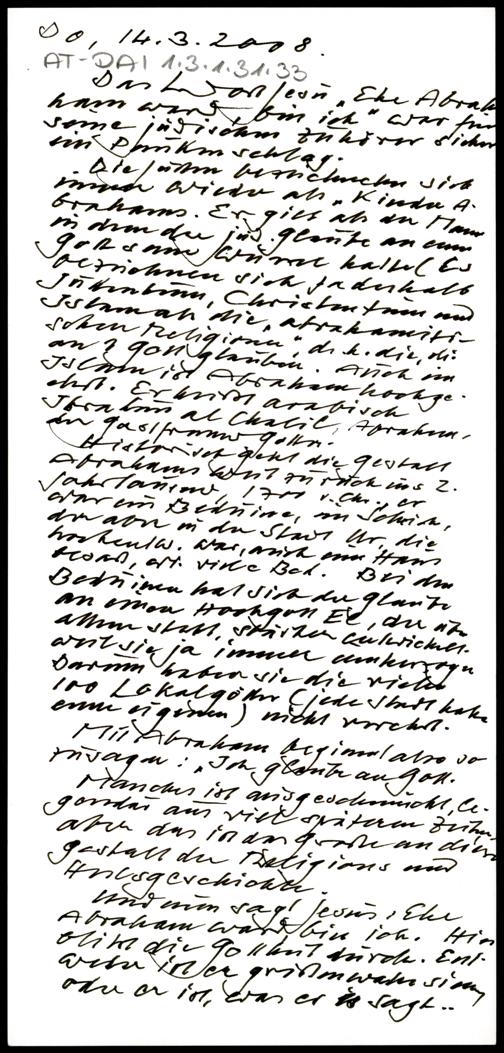 Do, 14.3.2008.
AT-DAI 1.3.1.31.33
Das Wort Jesu „Ehe Abra
ham ward, bin ich" war für
seine jüdischen Zuhörer sicher
ein Paukenschlag.
Die Juden bezeichneten sich
immer wieder als „Kinder A-
brahams. Er gilt als der Mann
in dem der jüd. Glaube an einen
Gott seine Wurzel hatte (Es
bezeichnen sich ja deshalb
Judentum, Christentum und
Islam als die „abrahamiti-
schen Religionen", d.h. die, die
an 1 Gott glauben. Auch im
Islam ist Abraham hochge-
ehrt. Er heißt arabisch
Ibrahim al Chalil, Abraham,
der Gastfreund Gottes.
Historisch geht die Gestalt
Abrahams weit zurück ins 2.
Jahrtausend, 1700 v. Chr., er
war ein Beduine, ein Scheich,
der aber in der Stadt Ur, die
hochentw. war, auch ein Haus
besaß, viele Bed. Bei den
Beduinen hat sich der Glaube
an einen Hochgott El, der über
allem steht, stärker entwickelt.
weil sie ja immer umherzogen
Darum haben sie die vielen
100 Lokalgötter (jede Stadt hatte
einen eigenen) nicht verehrt.
Mit Abraham beginnt also so
zusagen: „Ich glaube an Gott.
Manches ist ausgeschmückt, Le-
gendär aus viel späteren Zeiten,
aber das ist das Große an dieser
Gestalt der Religions und
Heilsgeschichte.
Und nun sagt Jesus: Ehe
Abraham ward, bin ich. Hier
blitzt die Gottheit durch. Ent-
weder ist er größenwahnsinnig
oder er ist, was er sagt..